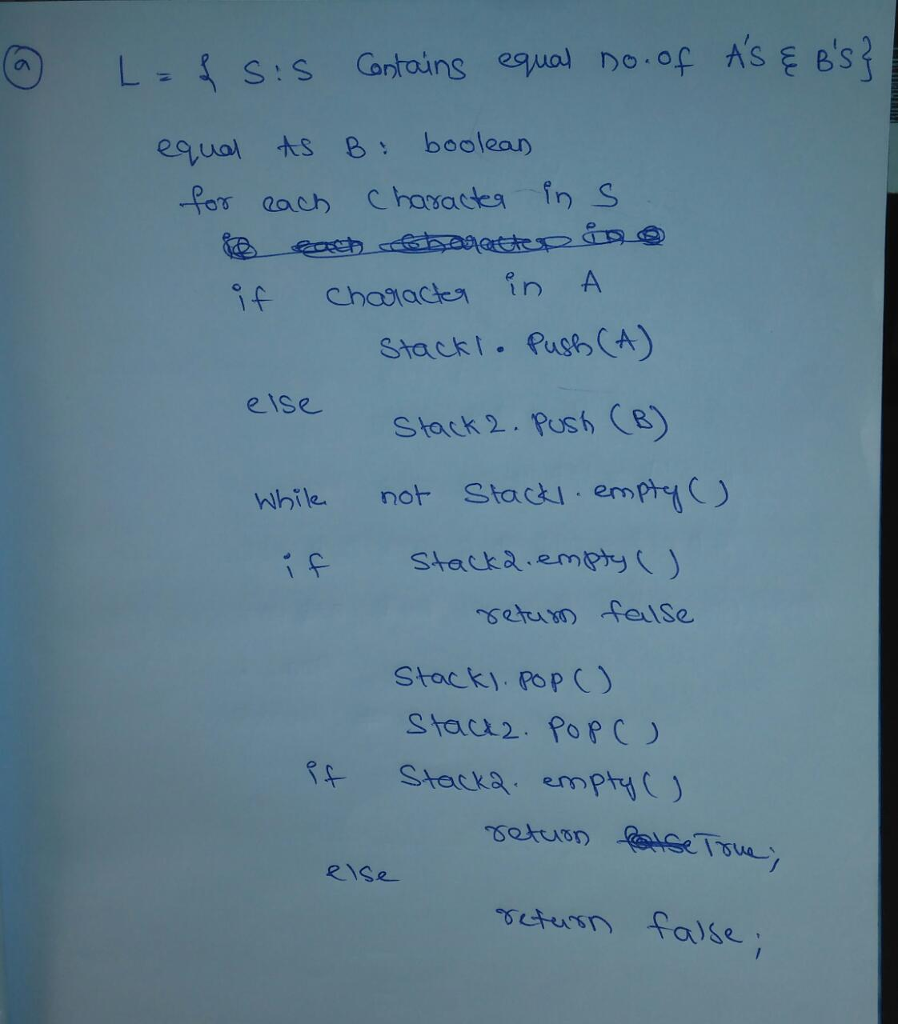 a L = { S:S Contains equal no.of A'S & B'S}
equal AS B: boolean
for each Character in S
each Character in S
if Character in A
Stack1. Push(A)
else
Stack2. Push (B)
While not Stack1. empty()
if Stack2.empty()
return false
Stack1. POP()
Stack2. POP()
if Stack2. empty()
return false True;
else
return false;